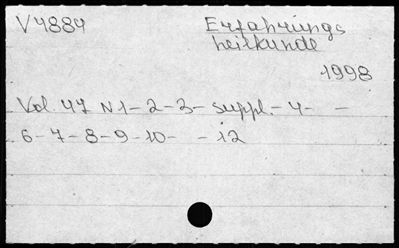 V4884 Erfahrungs
heilkunde
1998
Vol. 47 N1-2-3- suppl.-4- -
6-7-8-9-10- -12